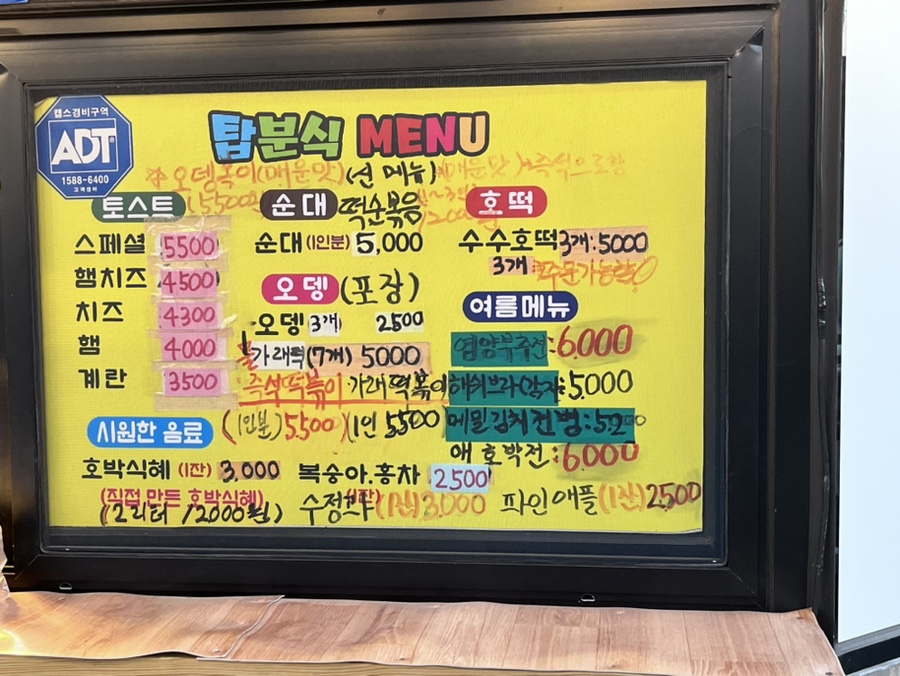 캡스경비구역
ADT
1588-6400
고객센터
탑분식 MENU
오뎅볶이(매운맛)(선 메뉴)
토스트
스페셜 5500
햄치즈 4500
치즈 4300
햄 4000
계란 3500
순대 떡순볶음
순대(1인분) 5,000
오뎅 (포장)
오뎅 3개 2500
가래떡(7개) 5000
즉석떡볶이 가래떡볶이
(1인분) 5500 (1인 5500
호떡
수수호떡 3개:5000
3개:주문가능함
여름메뉴
영양부추전:6000
해쉬브라운감자:5000
메밀김치전병:
애 호박전:6000
시원한 음료
호박식혜 (1잔) 3,000
(직접 만든 호박식혜)
(2리터 /2000원)
복숭아.홍차 2500
수정과 (1잔) 3000
파인애플 (1잔) 2500